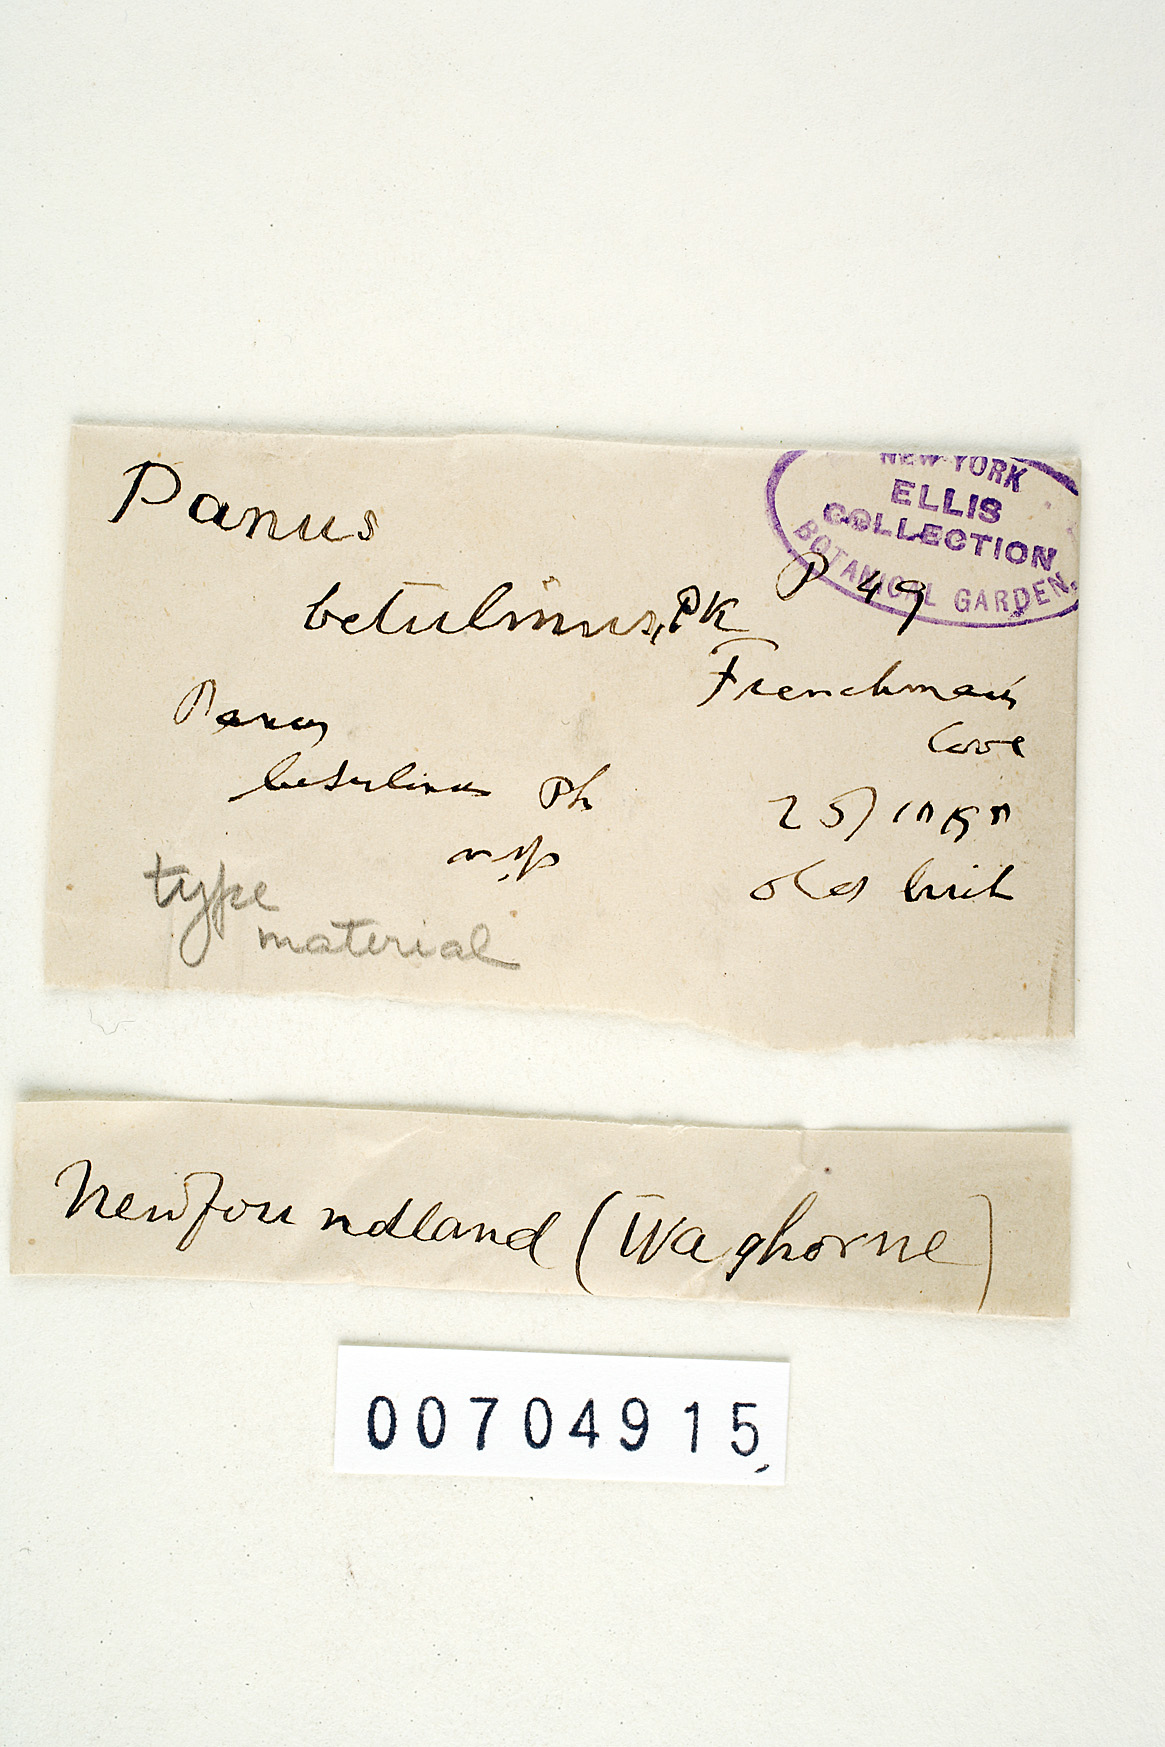 Panus
betulinus, Pk
NEW YORK
ELLIS
COLLECTION
BOTANICAL GARDEN.
P 49
Frenchman's
Cove
25/
old birch
Panus
betulinus Pk
n.sp
type
material
Newfoundland (Waghorne)
00704915